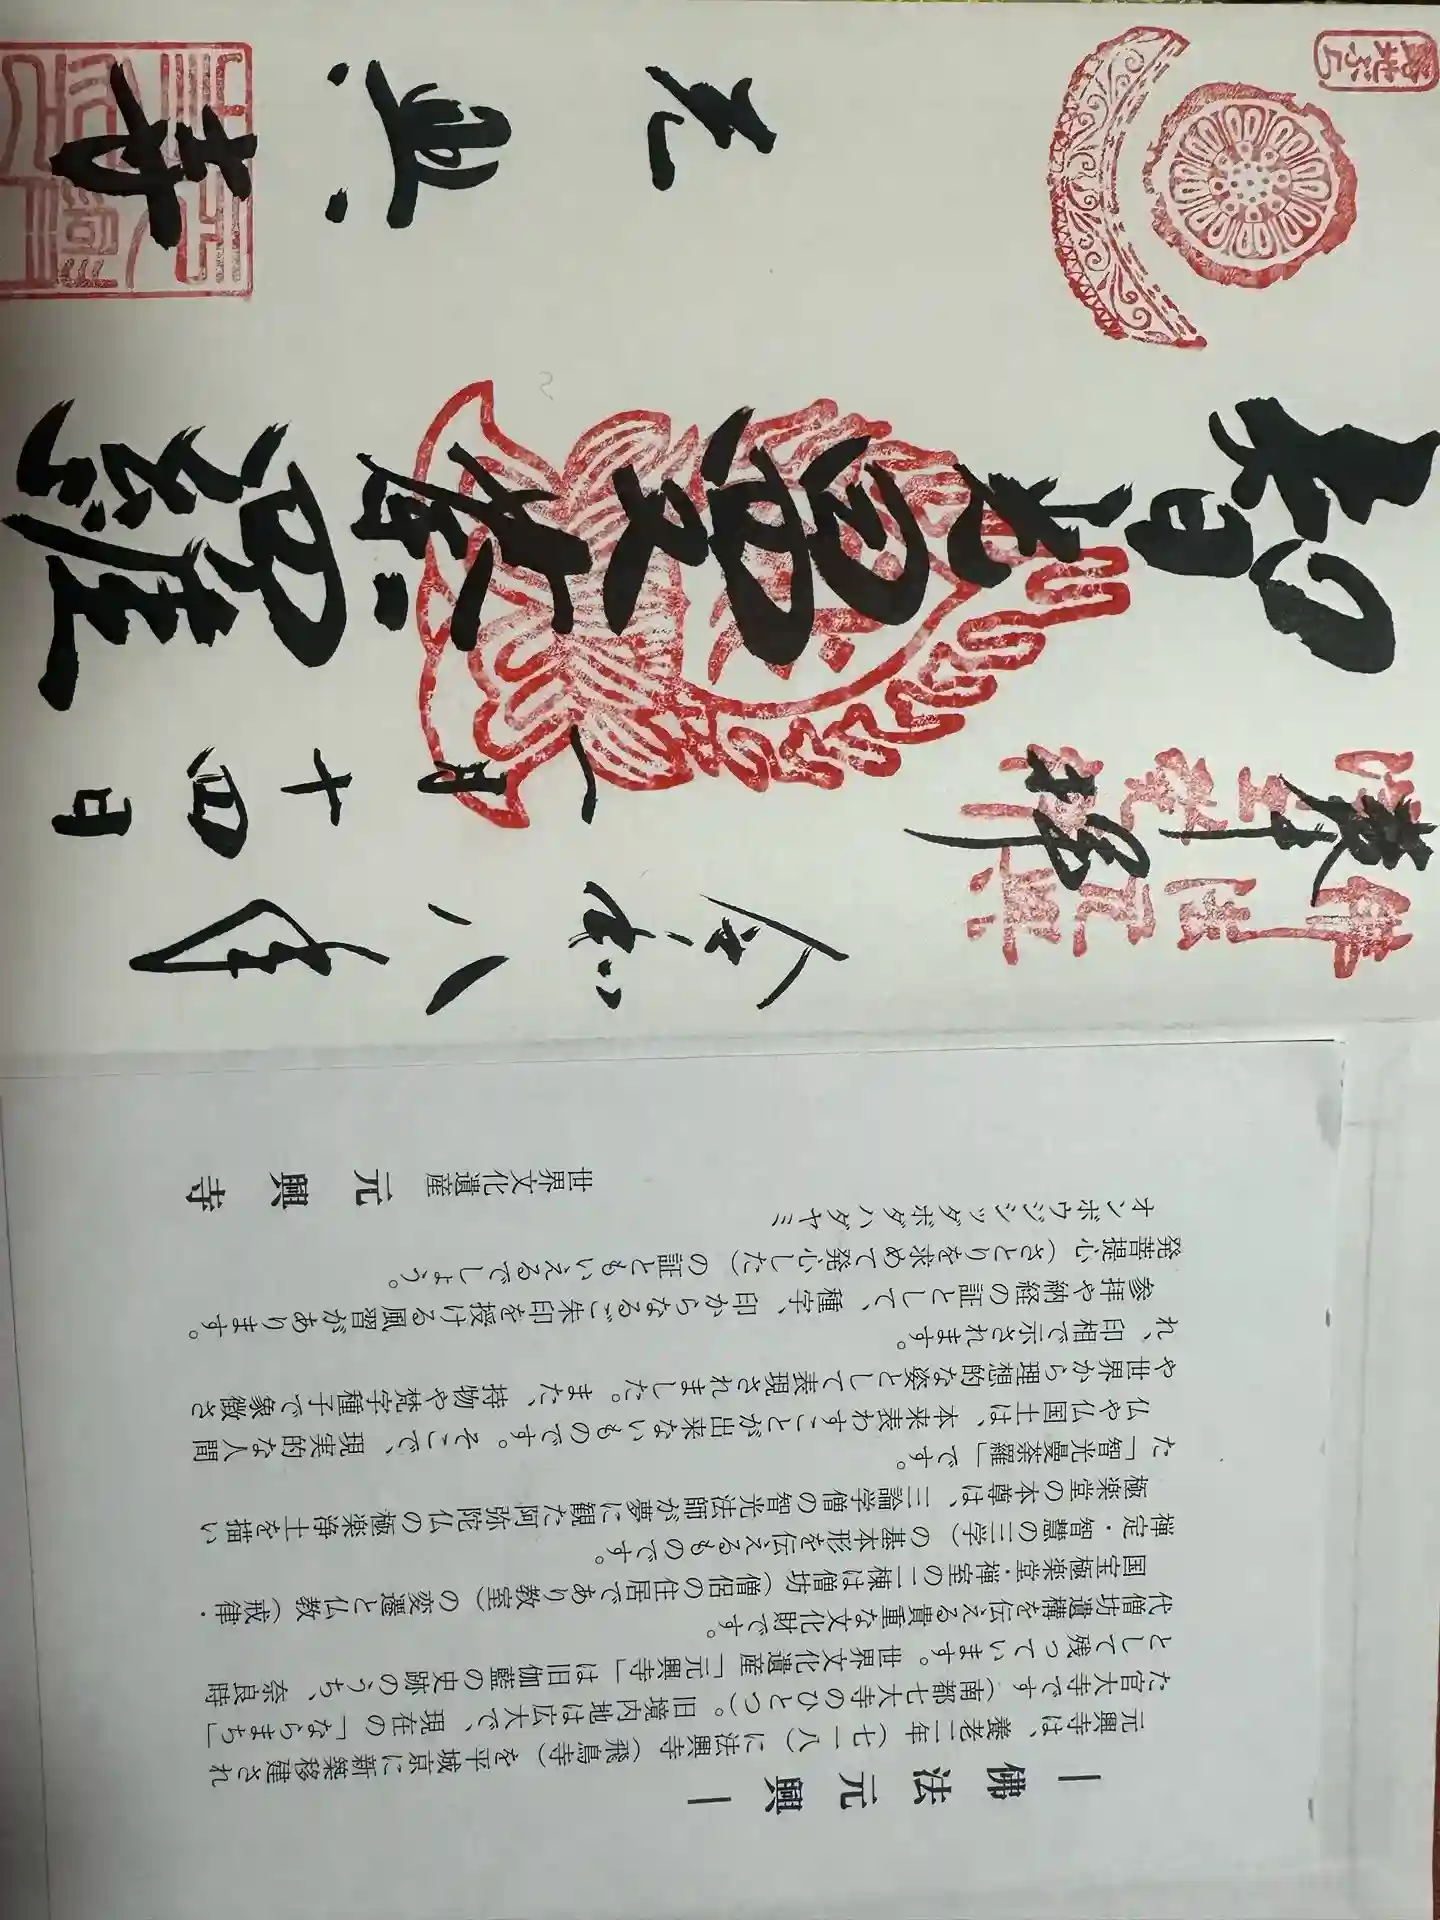 奉拝
令和八年
一月十四日
智光曼荼羅
元興寺
佛法元興
ー佛法元興ー
元興寺は、養老二年（七一八）に法興寺（飛鳥寺）を平城京に新築移建され
た官大寺です（南都七大寺のひとつ）。旧境内地は広大で、現在の「ならまち」
として残っています。世界文化遺産「元興寺」は旧伽藍の史跡のうち、奈良時
代僧坊遺構を伝える貴重な文化財です。
国宝極楽堂・禅室の二棟は僧坊（僧侶の住居であり教室）の変遷と仏教（戒律・
禅定・智慧の三学）の基本形を伝えるものです。
極楽堂の本尊は、三論学僧の智光法師が夢に観た阿弥陀仏の極楽浄土を描い
た「智光曼荼羅」です。
仏や仏国土は、本来表わすことが出来ないものです。そこで、現実的な人間
や世界から理想的な姿として表現されました。また、持物や梵字種子で象徴さ
れ、印相で示されます。
参拝や納経の証として、種字、印からなるご朱印を授ける風習があります。
発菩提心（さとりを求めて発心した）の証ともいえるでしょう。
オンボウジシッダボダハダヤミ
世界文化遺産 元興寺